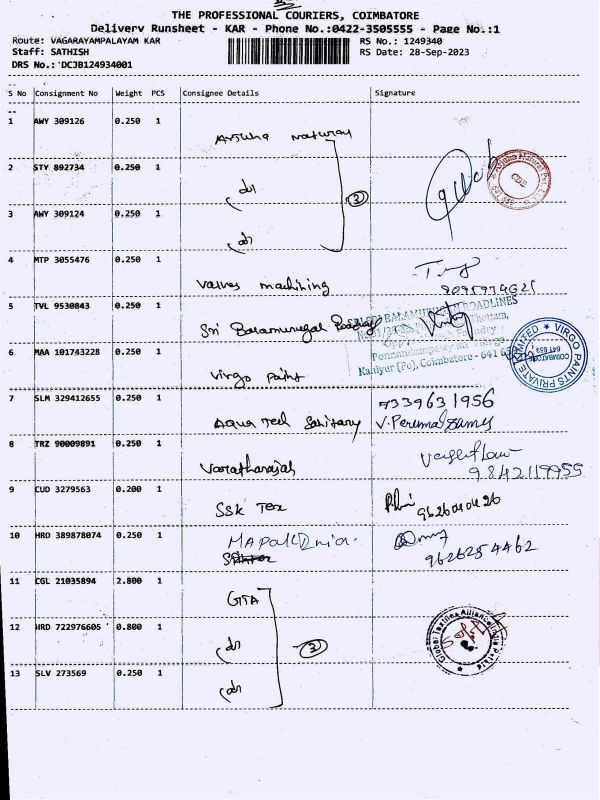 THE PROFESSIONAL COURIERS, COIMBATORE
Delivery Runsheet - KAR - Phone No.:0422-3505555 - Page No.:1
Route: VAGARAYAMPALAYAM KAR RS No.: 1249340
Staff: SATHISH RS Date: 28-Sep-2023
DRS No.: DCJB124934001
S No Consignment No Weight PCS Consignee Details Signature
1 AWY 309126 0.250 1
Arjuna Natural
2 STY 892734 0.250 1
do
3
Arjuna Natural Pvt. Ltd.
3 AWY 309124 0.250 1
do
4 MTP 3055476 0.250 1
Valves machining
5 TVL 9530843 0.250 1
Sri Balamurugan Roadlines
SRI BALAMURUGAN ROADLINES
Kaniyur (Po), Coimbatore - 641
6 MAA 101743228 0.250 1
Virgo Paint
VIRGO PAINTS PRIVATE LIMITED
COIMBATORE
641 659
7 SLM 329412655 0.250 1
Aqua Tech Sanitary
7339631956
V. Perumalsamy
8 TRZ 90009891 0.250 1
Varatharajah
9842119955
9 CUD 3279563 0.200 1
SSK Tex
9626040426
10 HRD 389878074 0.250 1
9626254462
11 CGL 21035894 2.800 1
GTA
12 HRD 722976605 0.800 1
do
3
Global Textile Alliance India Pvt Ltd
13 SLV 273569 0.250 1
do